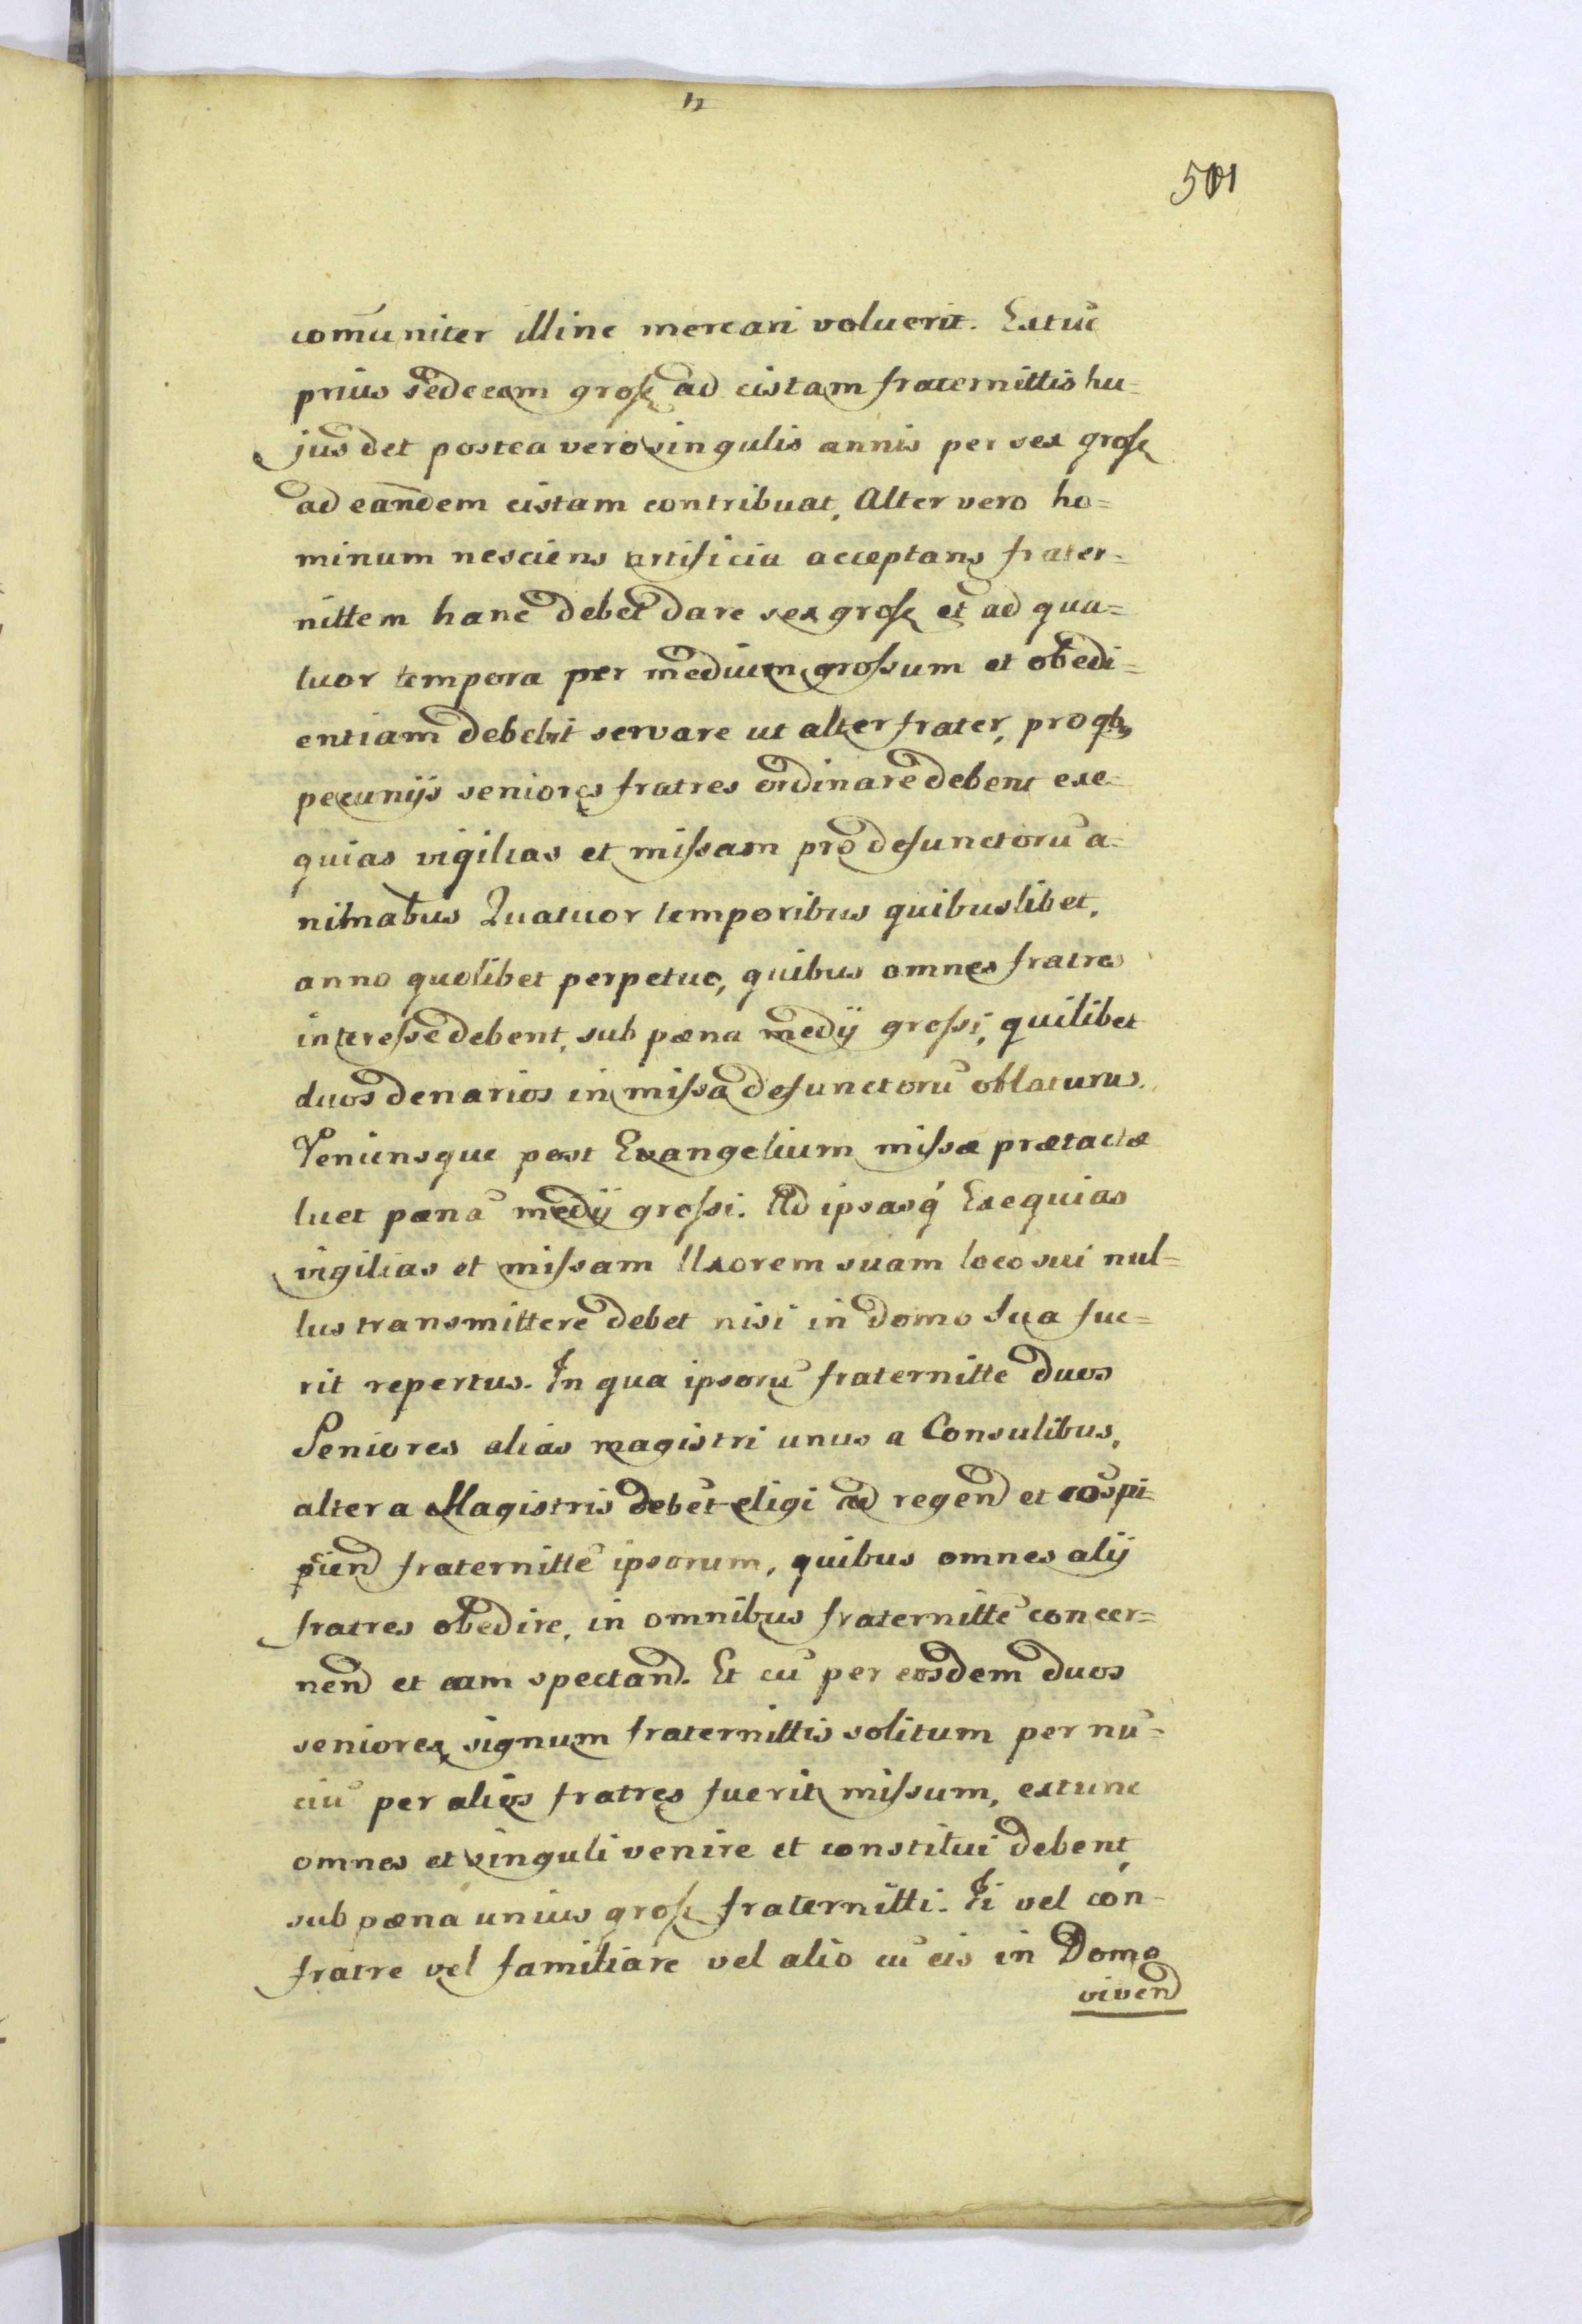 501
com̄uniter illinc mercari voluerit. Extuc̄
prius sedecem gross ad cistam fraternittis hu=
jus det postea vero singulis annis per sex gross
ad eandem cistam contribuat, Alter vero ho=
minum nesciens artificia acceptans frater=
nittem hanc debet dare sex gross et ad qua=
tuor tempora per medium grossum et obedi=
entiam debebit servare ut alter frater, pro qb,
pecunijs seniores fratres ordinare debent exe=
quias vigilias et missam pro defunctorū a=
nimabus Quatuor temporibus quibuslibet,
anno quolibet perpetuo, quibus omnes fratres
interesse debent, sub pæna medij grossi, quilibet
duos denarios in missa defunctorū oblaturus.
Veniensque post Evangelium missæ prætactæ
luet pænā medij grossi. Ad ipsasq́ Exequias
vigilias et missam Uxorem suam loco sui nul=
lus transmittere debet nisi in domo sua fue=
rit repertus. In qua ipsorū fraternitte duos
Seniores alias magistri unus a Consulibus,
alter a Magistris debēt eligi ad regend et
fraternittē ipsorum, quibus omnes alij
fratres obedire, in omnibus fraternittē concer=
nend et eam spectand. Et cū per eosdem duos
seniores signum fraternittis solitum per nū=
ciū per alios fratres fuerit missum, extunc
omnes et singuli venire et constitui debent
sub pæna unius gross fraternitti. Ii vel con=
fratre vel familiare vel alio cū eis in Domo
vivend